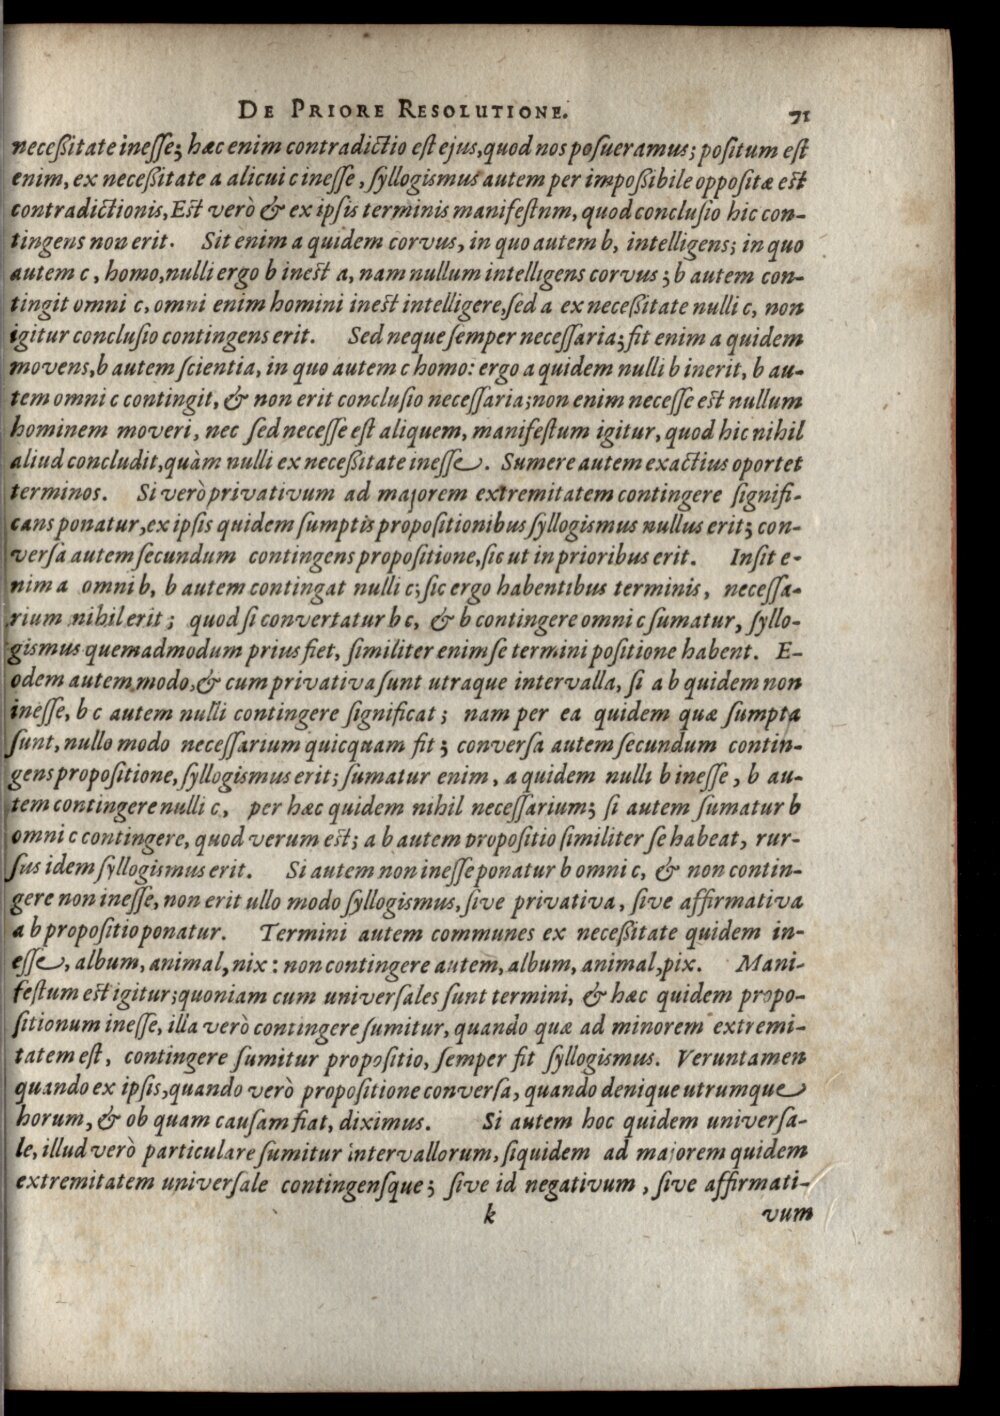 DE PRIORE RESOLUTIONE. 71
neceßitate ineſſe; hæc enim contradictio eſt ejus, quod nos poſueramus; poſitum eſt
enim, ex neceßitate a alicui c ineſſe, ſyllogismus autem per impoßibile oppoſitæ eſt
contradictionis, Eſt verò & ex ipſis terminis manifeſtnm, quod concluſio hic con-
tingens non erit. Sit enim a quidem corvus, in quo autem b, intelligens; in quo
autem c, homo, nulli ergo b ineſt a, nam nullum intelligens corvus; b autem con-
tingit omni c, omni enim homini ineſt intelligere, ſed a ex neceßitate nulli c, non
igitur concluſio contingens erit. Sed neque ſemper neceſſaria; ſit enim a quidem
movens, b autem ſcientia, in quo autem c homo: ergo a quidem nulli b inerit, b au-
tem omni c contingit, & non erit concluſio neceſſaria; non enim neceſſe eſt nullum
hominem moveri, nec ſed neceſſe eſt aliquem, manifeſtum igitur, quod hic nihil
aliud concludit, quàm nulli ex neceßitate ineſſe. Sumere autem exactius oportet
terminos. Si verò privativum ad majorem extremitatem contingere ſignifi-
cans ponatur, ex ipſis quidem ſumptis propoſitionibus ſyllogismus nullus erit; con-
verſa autem ſecundum contingens propoſitione, ſic ut in prioribus erit. Inſit e-
nim a omni b, b autem contingat nulli c; ſic ergo habentibus terminis, neceſſa-
rium nihil erit; quod ſi convertatur b c, & b contingere omni c ſumatur, ſyllo-
gismus quemadmodum prius fiet, ſimiliter enim ſe termini poſitione habent. E-
odem autem modo, & cum privativa ſunt utraque intervalla, ſi a b quidem non
ineſſe, b c autem nulli contingere ſignificat; nam per ea quidem quæ ſumpta
ſunt, nullo modo neceſſarium quicquam fit; converſa autem ſecundum contin-
gens propoſitione, ſyllogismus erit; ſumatur enim, a quidem nulli b ineſſe, b au-
tem contingere nulli c, per hæc quidem nihil neceſſarium; ſi autem ſumatur b
omni c contingere, quod verum eſt; a b autem propoſitio ſimiliter ſe habeat, rur-
ſus idem ſyllogismus erit. Si autem non ineſſe ponatur b omni c, & non contin-
gere non ineſſe, non erit ullo modo ſyllogismus, ſive privativa, ſive affirmativa
a b propoſitio ponatur. Termini autem communes ex neceßitate quidem in-
eſſe, album, animal, nix: non contingere autem, album, animal, pix. Mani-
feſtum eſt igitur; quoniam cum univerſales ſunt termini, & hæc quidem propo-
ſitionum ineſſe, illa verò contingere ſumitur, quando quæ ad minorem extremi-
tatem eſt, contingere ſumitur propoſitio, ſemper fit ſyllogismus. Veruntamen
quando ex ipſis, quando verò propoſitione converſa, quando denique utrumque
horum, & ob quam cauſam fiat, diximus. Si autem hoc quidem univerſa-
le, illud verò particulare ſumitur intervallorum, ſiquidem ad majorem quidem
extremitatem univerſale contingenſque; ſive id negativum, ſive affirmati-
k vum